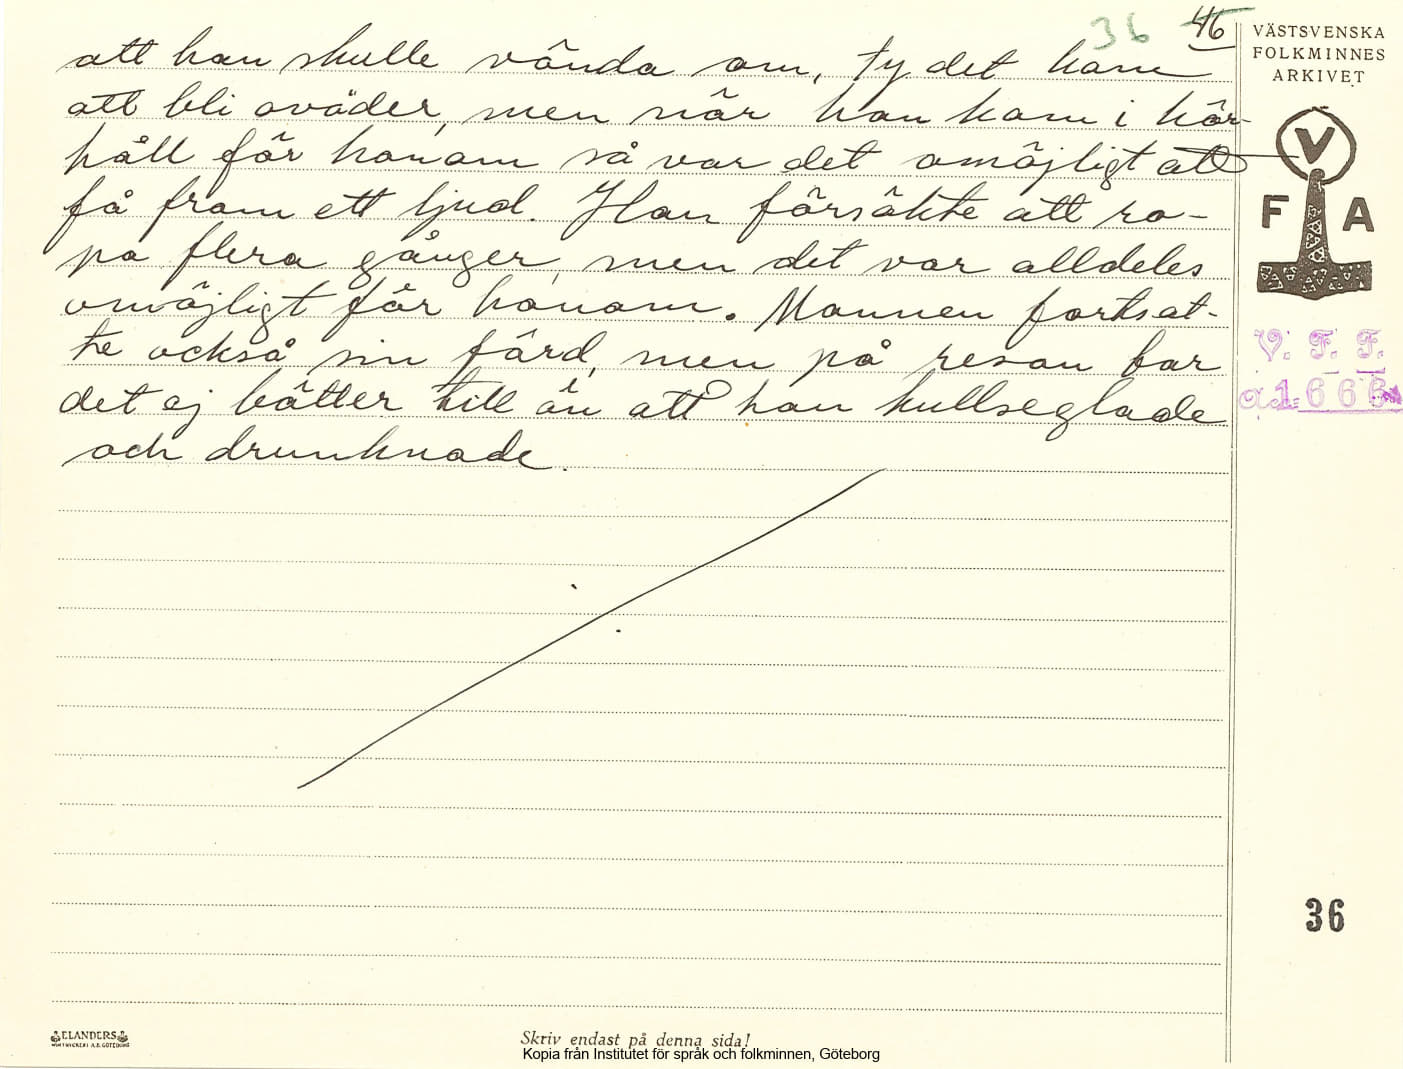 36 46
att han skulle vända om, ty det kom
att bli oväder, men när han kom i hör-
håll för honom så var det omöjligt att
få fram ett ljud. Han försökte att ro-
pa flera gånger, men det var alldeles
omöjligt för honom. Mannen fortsat-
te också sin färd, men på resan bar
det ej bätter till än att han kullseglade
och drunknade.
VÄSTSVENSKA
FOLKMINNES
ARKIVET
V
F A
V. F. F.
1666
36
ELANDERS
Skriv endast på denna sida!
Kopia från Institutet för språk och folkminnen, Göteborg